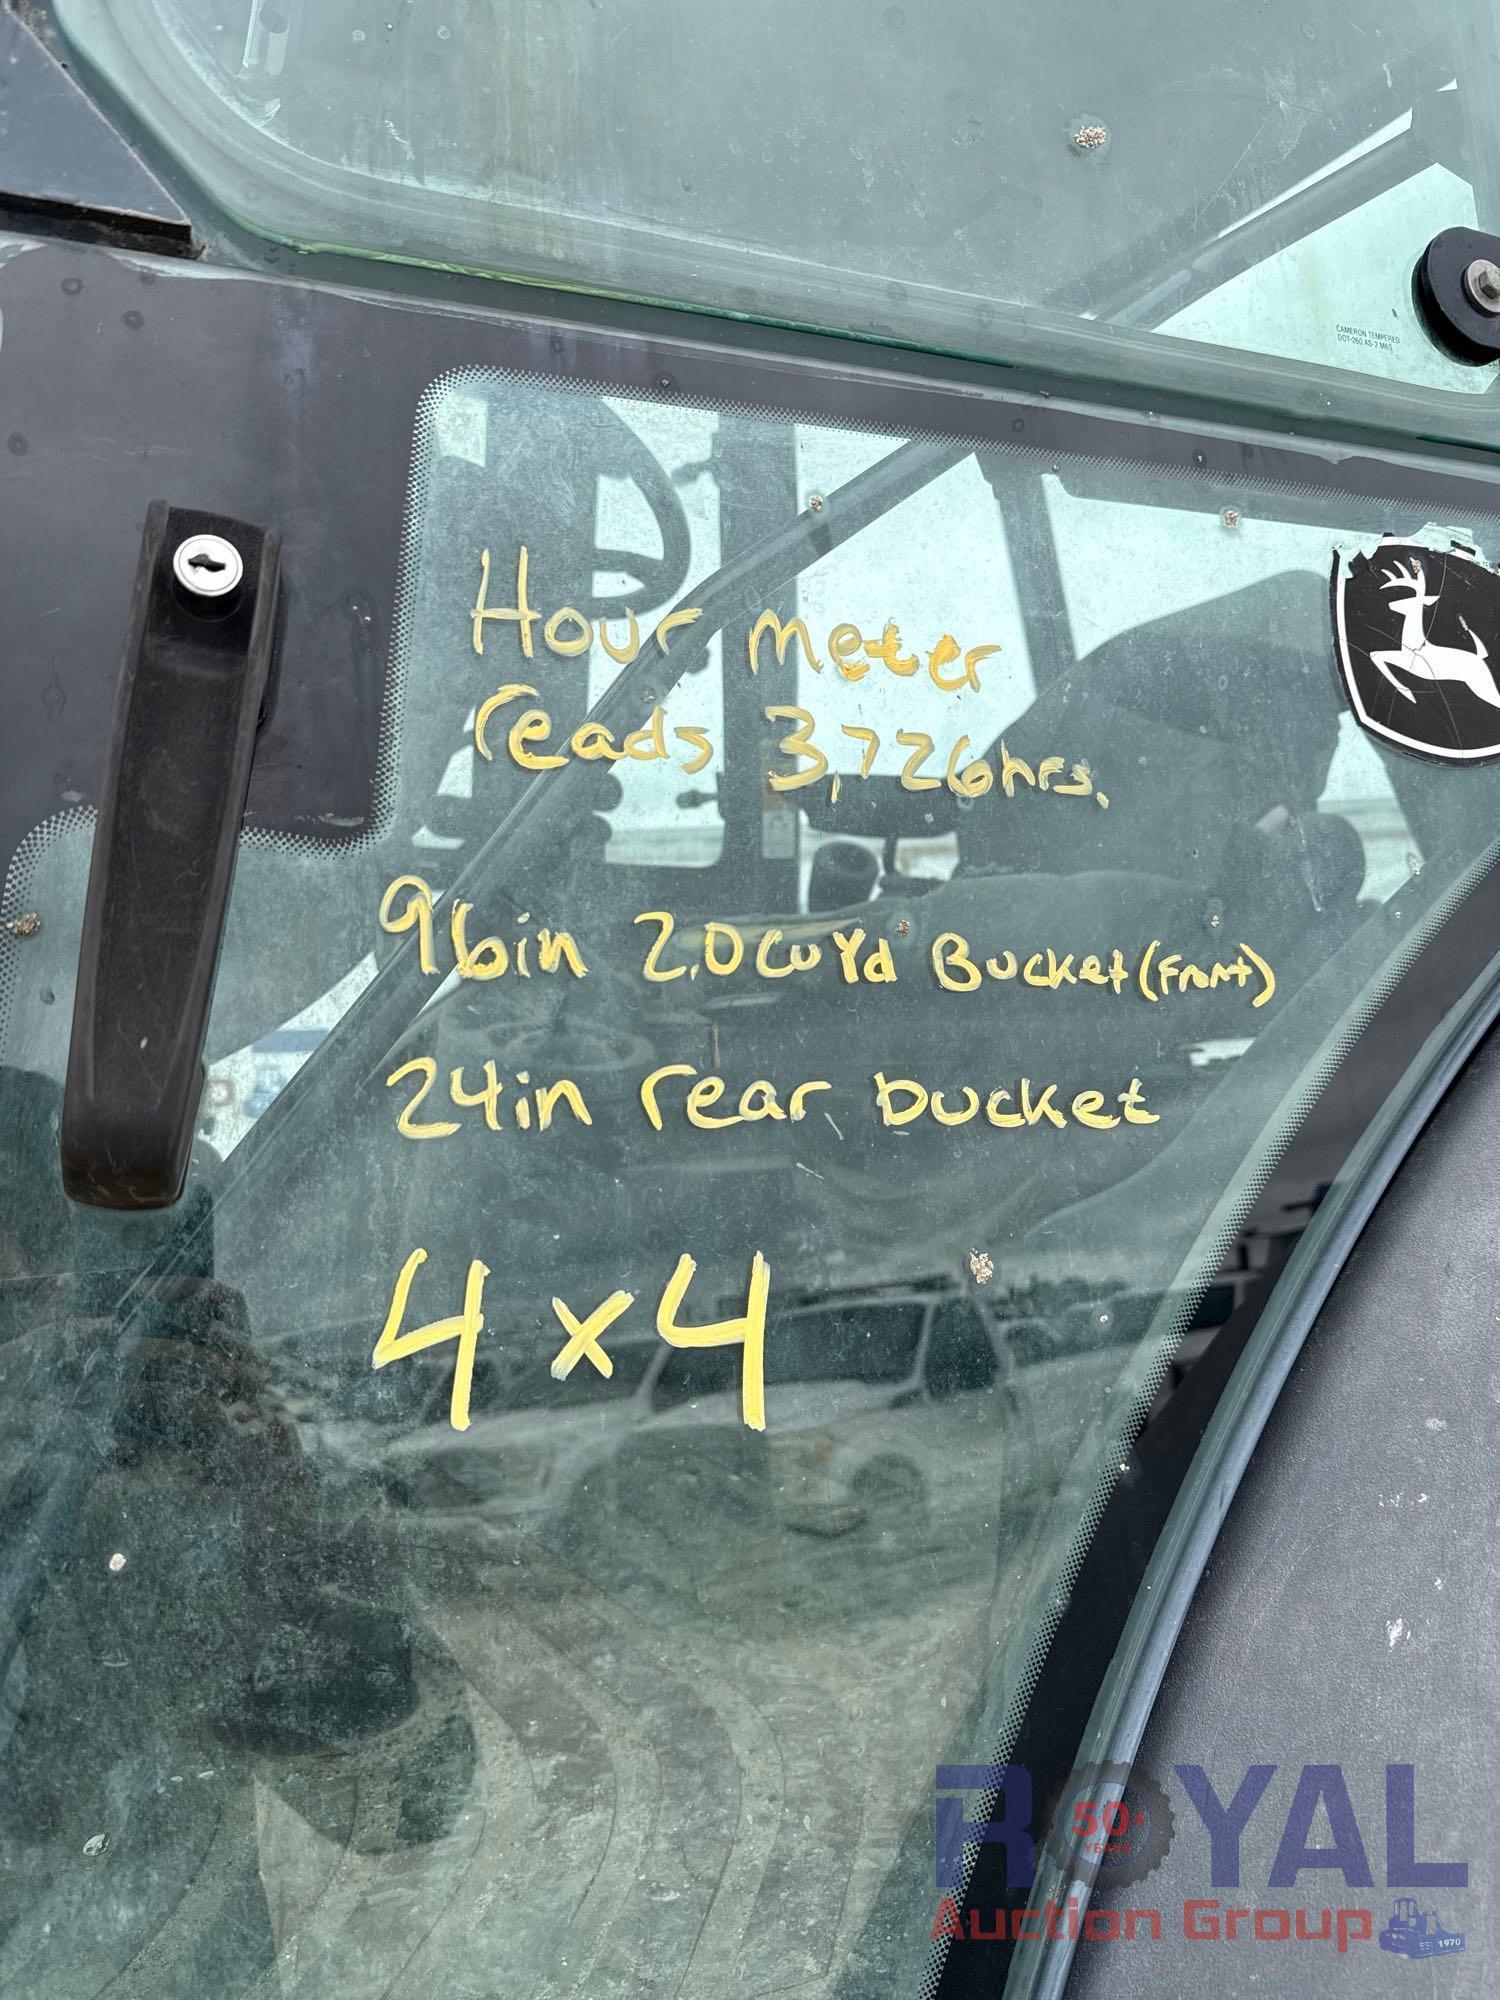 CAMERON TEMPERED
DOT-260 AS-2 M6S
Hour meter
reads 3,726hrs.
96in 2.0 cu Yd Bucket (Front)
24in rear bucket
4x4
ROYAL
50+
YEARS
Auction Group
EST 1970